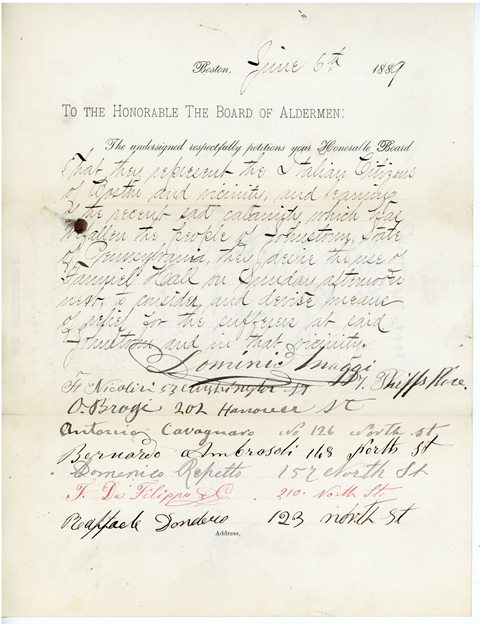 Boston, June 6th 1889
TO THE HONORABLE THE BOARD OF ALDERMEN:
The undersigned respectfully petitions your Honorable Board
That they represent the Italian Citizens
of Boston and vicinity, and learning
of the recent sad calamity which has
befallen the people of Johnstown, State
of Pennsylvania, they desire the use of
Faneuil Hall on Sunday afternoon
next, to consider and devise means
of relief for the sufferers at said
Johnstown and in that vicinity.
Dominic Maggi
F. Nicolini 53 Washington St Phipps Place.
O. Brogi 202 Hanover St
Antonio Cavagnaro No 126 North st
Bernardo Ambrosoli 148 North St
Domenico Repetto 157 North St
F. De Filippo & Co. 210 North St.
Raffaele Dondero 123 north St
Address,